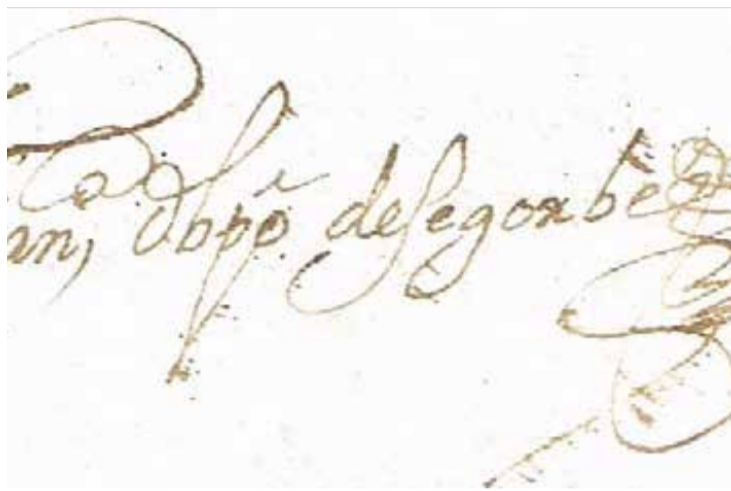 an, Obpo de Segorbe